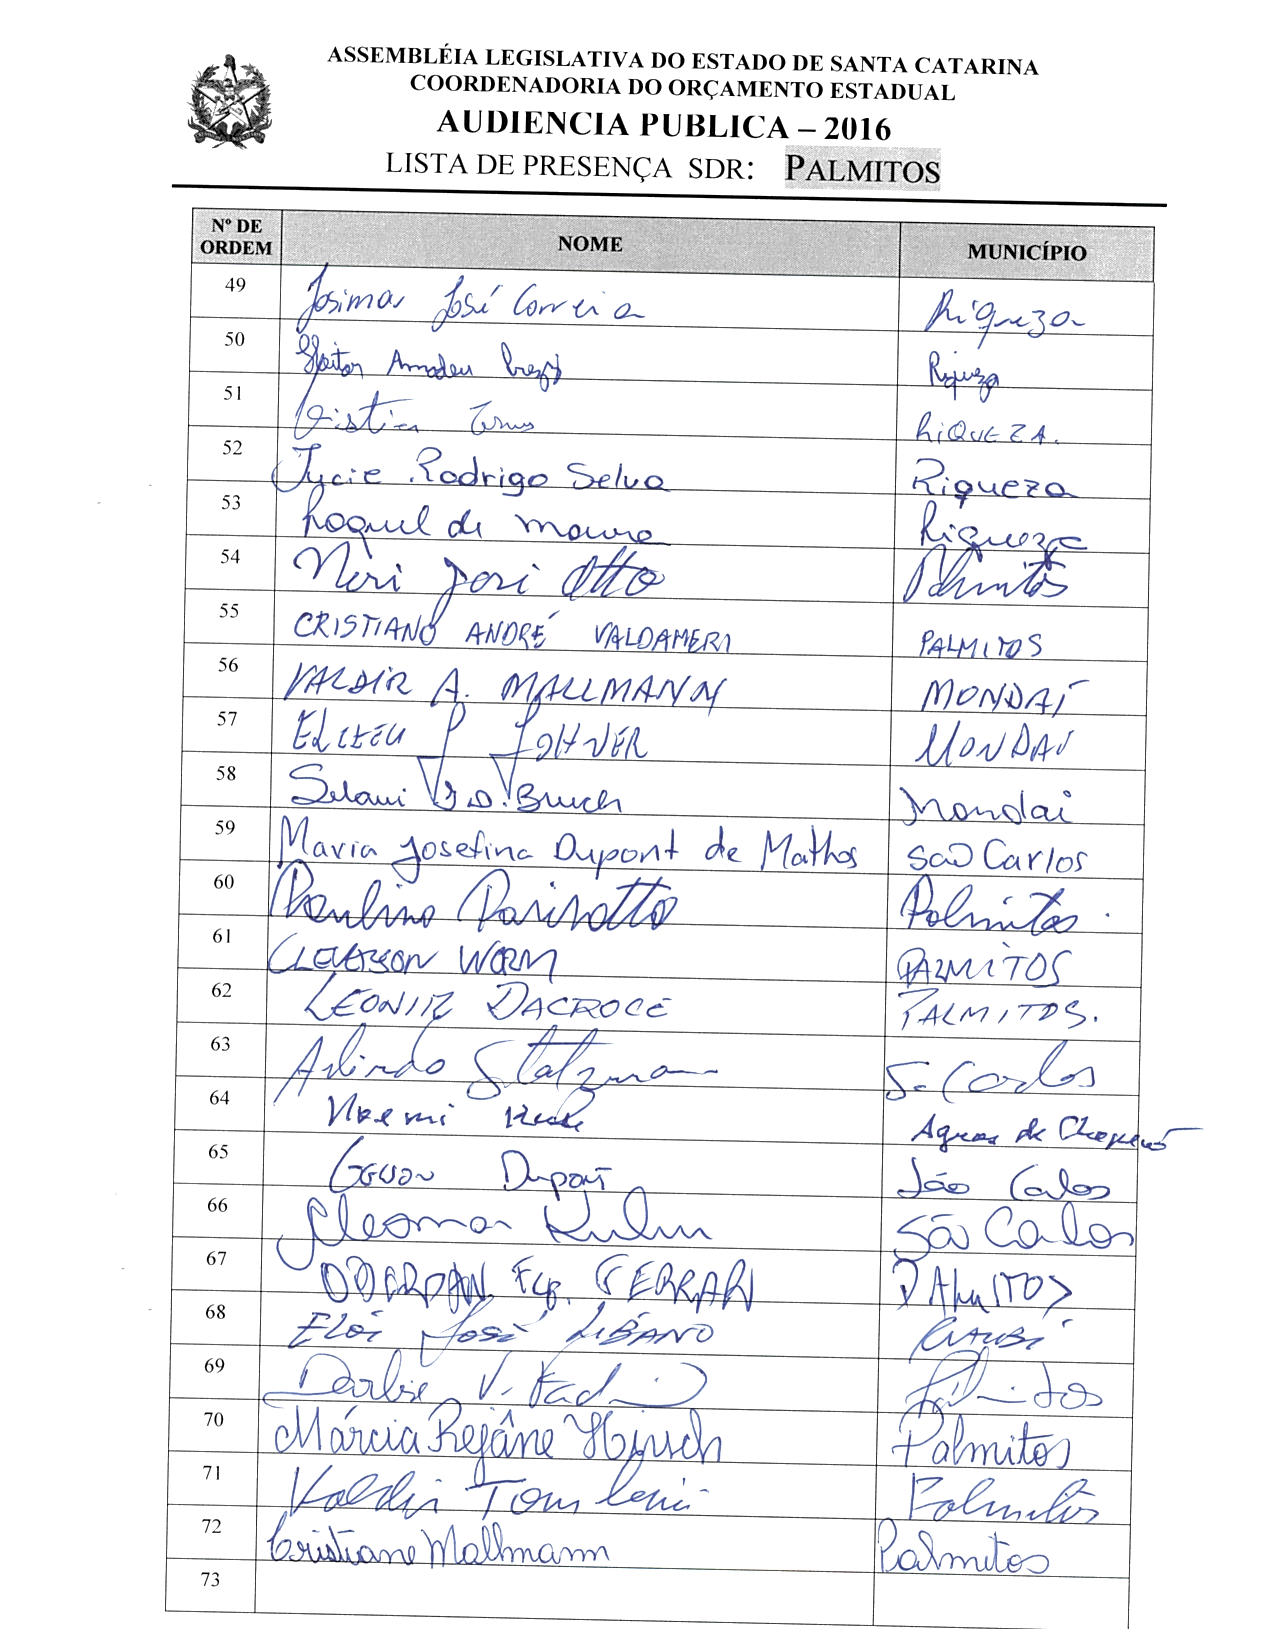 ASSEMBLÉIA LEGISLATIVA DO ESTADO DE SANTA CATARINA
COORDENADORIA DO ORÇAMENTO ESTADUAL
AUDIENCIA PUBLICA – 2016
LISTA DE PRESENÇA SDR: PALMITOS
Nº DE ORDEM NOME MUNICÍPIO
49 Josimar José Correia Riqueza
50 Heitor Amadeu Riqueza
51 RIQUEZA.
52 Jycie Rodrigo Selva Riqueza
53 Raquel de Moura Riqueza
54 Neri José Otto Palmitos
55 CRISTIANO ANDRÉ VALDAMERI PALMITOS
56 VALDIR A. MALLMANN MONDAÍ
57 ELIZEU P MONDAÍ
58 Selani Mondai
59 Maria Josefina Dupont de Mathos São Carlos
60 Paulino Parisotto Palmitos.
61 CLEVERSON WORM PALMITOS
62 LEONIR DACROCE PALMITOS.
63 Arlindo S. Carlos
64 Noemi Aguas de Chapecó
65 Gerson Dupont São Carlos
66 Cleomar Kuhn São Carlos
67 ODERDAN FERRARI PALMITOS
68 ELOI JOSÉ LIBANO CAIBI
69 Darlise V. Palmitos
70 Márcia Rejâne Hirsch Palmitos
71 Valdir Palmitos
72 Cristiane Mallmann Palmitos
73